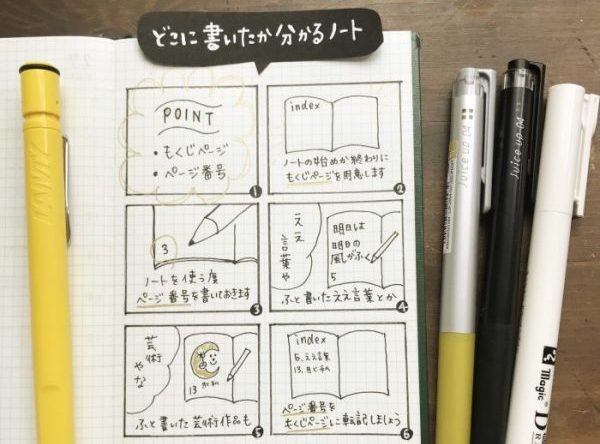 どこに書いたか分かるノート
POINT
・もくじページ
・ページ番号
1
index
ノートの始めか終わりに
もくじページを用意します
2
3
ノートを使う度
ページ番号を書いておきます
3
ええ
言葉や
明日は
明日の
風がふく
5
ふと書いたええ言葉とか
4
芸術
やな
13
ふと書いた芸術作品も
5
index
5. ええ言葉
13. 月と私
ページ番号を
もくじページに転記しましょう
6
LAMY
Juice up 04
Juice up 04
Magic